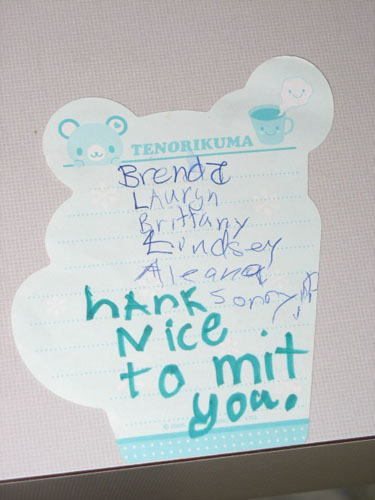 TENORIKUMA
Brenda
Lauryn
Brittany
Lindsey
Aleana
Sorry
hank
Nice
to mit
you.